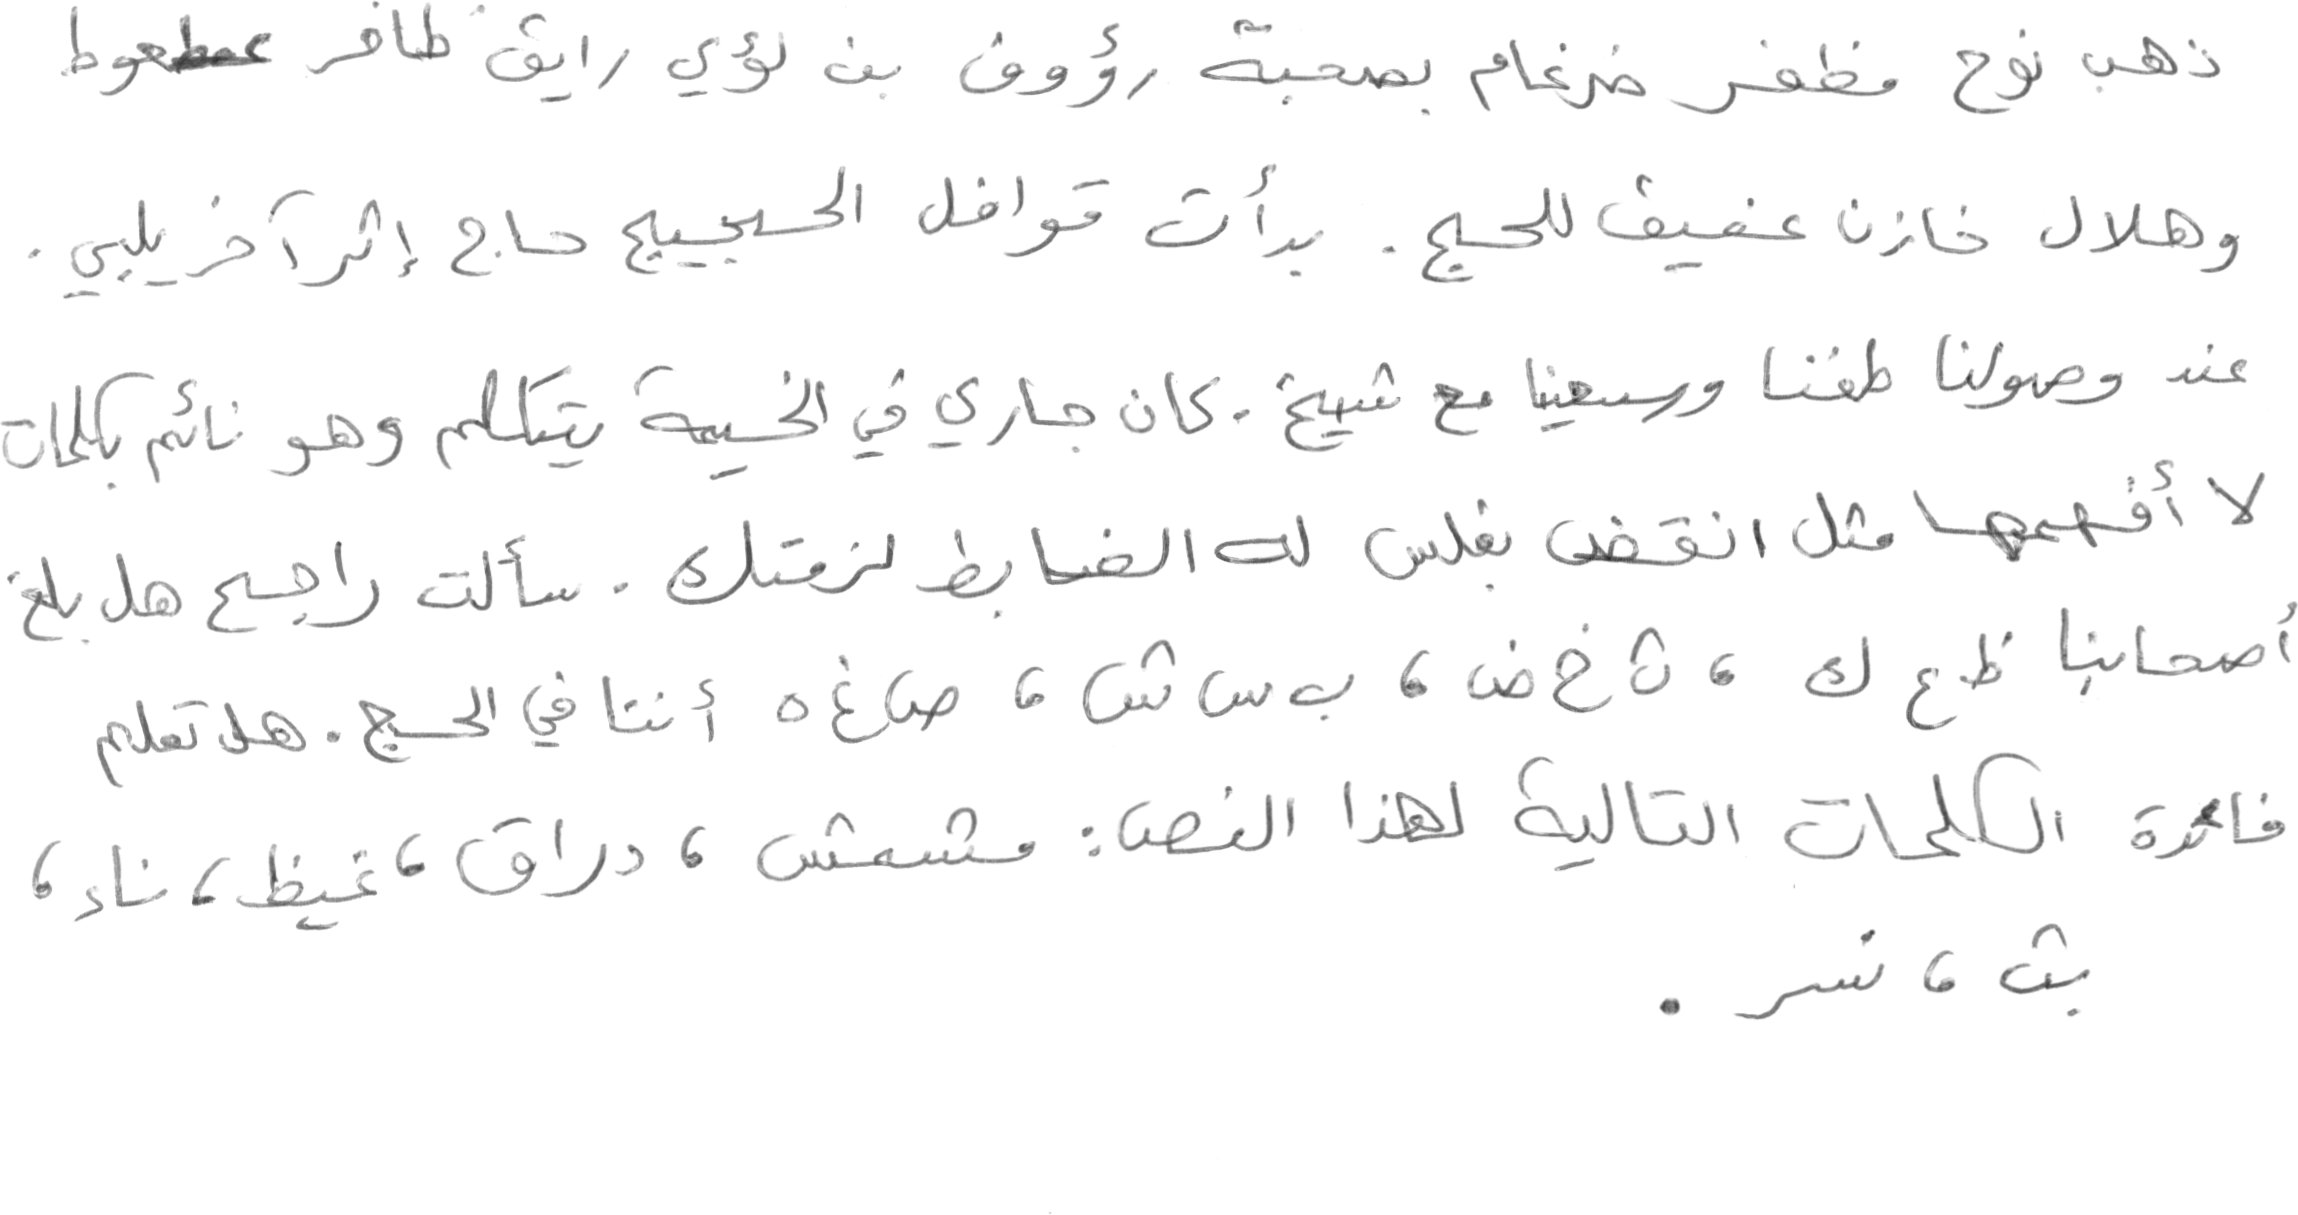 ذهب نوح مظفر ضرغام بصحبة رؤوف بن لؤي رايق ظافر عطعوط
وهلال خازن عفيف للحج. بدأت قوافل الحجيج حاج إثر آخر يلبي.
عند وصولنا طفنا وسعينا مع شيخ. كان جاري في الخيمة يتكلم وهو نائم بكلمات
لا أفهمها مثل انقض بغلس له الضابط لزمتك. سألت راجح هل بلغ
أصحابنا ظ ع ك ، ث خ ض ، ب س ش ، ص غ ه أننا في الحج. هل تعلم
فائدة الكلمات التالية لهذا النص: مشمش ، دراق ، غيظ ، ناء ،
بث ، نسر .